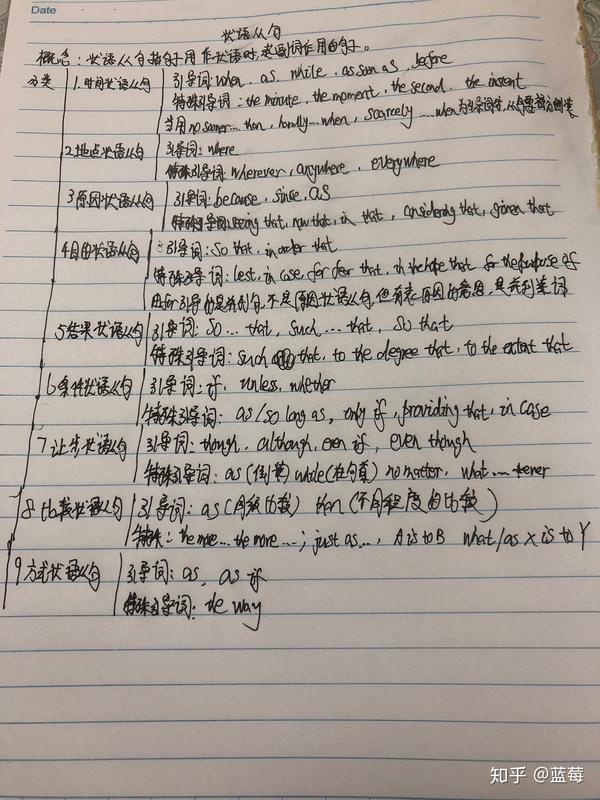 Date
状语从句
概念：状语从句指句子用作状语时，起副词作用的句子。
分类 1.时间状语从句 引导词：when, as, while, as soon as, before
特殊引导词：the minute, the moment, the second, the instent
当用no sooner...then, hardly...when, scarcely ...when为引导词时，从句要部分倒装
2.地点状语从句 引导词：where
特殊引导词：wherever, anywhere, everywhere
3原因状语从句 引导词：because, since, as
特殊引导词：seeing that, now that, in that, considering that, given that
4目的状语从句 引导词：So that, in order that
特殊引导词：lest, in case, for fear that, in the hope that for the purpose of
用for引导的是并列句，不是原因状语从句，但有表原因的意思，是并列连词
5结果状语从句 引导词：So...that, such...that, so that
特殊引导词：such that, to the degree that, to the extent that
6条件状语从句 引导词：if, unless, whether
特殊引导词：as/so long as, only if, providing that, in case
7让步状语从句 引导词：though, although, even if, even though
特殊引导词：as(倒装) while(在句首) no matter, what...+ever
8比较状语从句 引导词：as(同级比较) then(不同程度的比较)
特殊：the more...the more...; just as..., A is to B what/as X is to Y
9方式状语从句 引导词：as, as if
特殊引导词：the way
知乎 @蓝莓